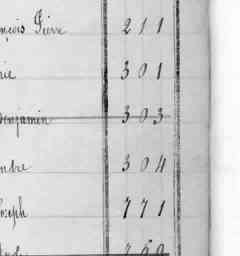 nçois Pierre 211
rie 301
Benjamin 303
mbre 304
Joseph 771